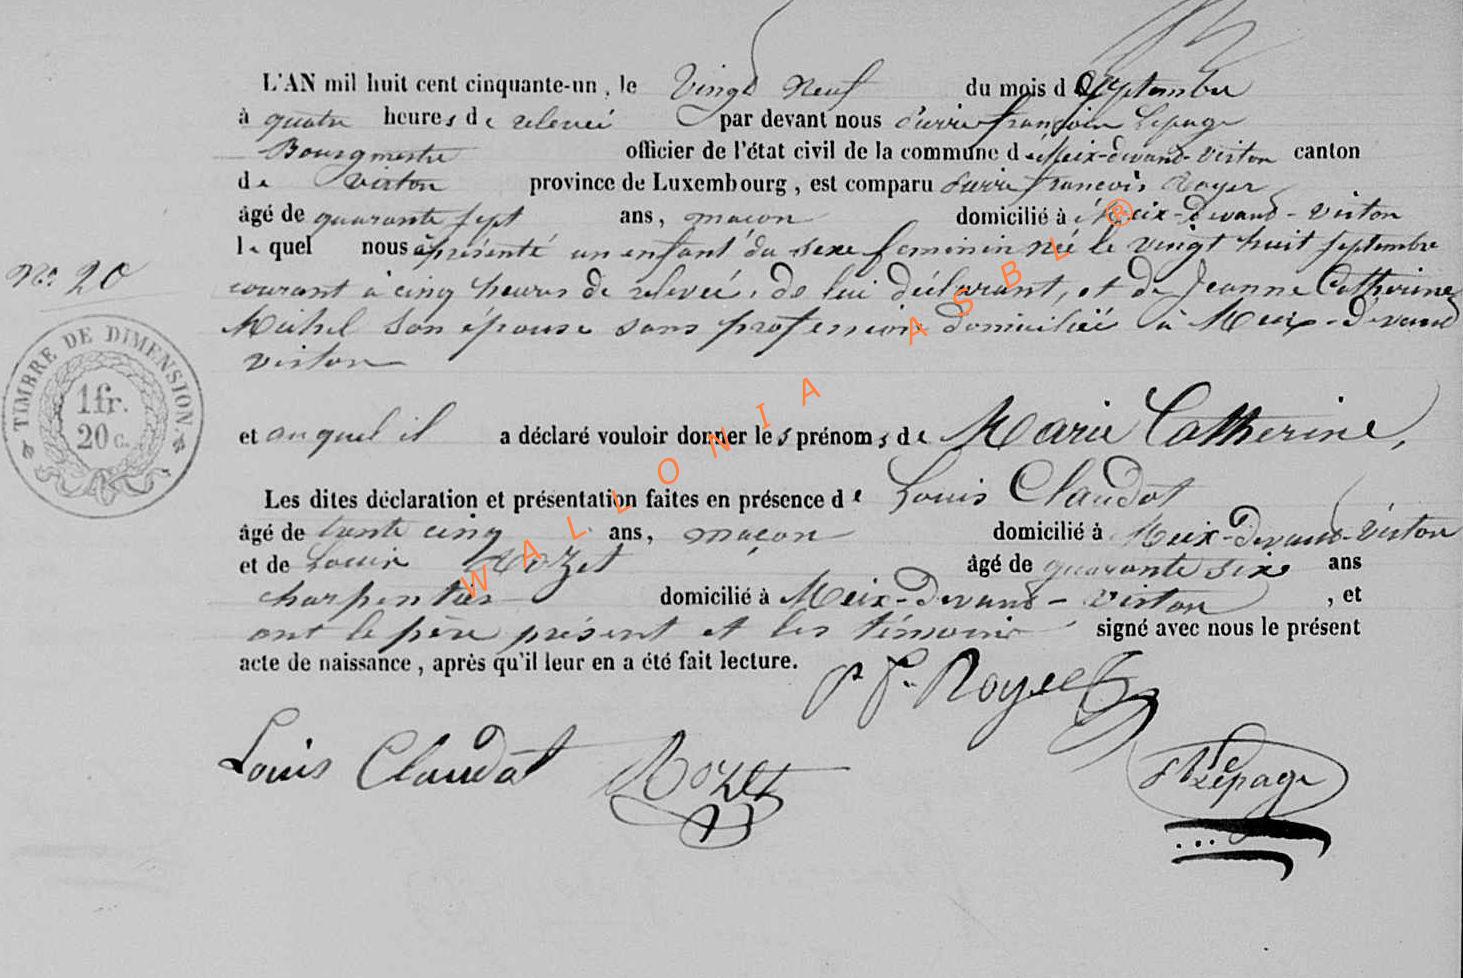 L'AN mil huit cent cinquante-un, le Vingt Neuf du mois de Septembre
à quatre heures de relevée par devant nous Pierre françois Lepage
Bourgmestre officier de l'état civil de la commune de Meix-devant-Virton canton
de Virton province de Luxembourg, est comparu Pierre françois Royer
âgé de quarante sept ans, maçon domicilié à Meix-devant-Virton
lequel nous à présenté un enfant du sexe feminin né le vingt huit septembre
courant à cinq heures de relevée, de lui déclarant, et de Jeanne Catherine
Michel son épouse sans profession domiciliée à Meix-devant
virton
No. 20
TIMBRE DE DIMENSION
1 fr.
20 c.
et auquel il a déclaré vouloir donner les prénoms de Marie Catherine,
Les dites déclaration et présentation faites en présence de Louis Claudot
âgé de trente cinq ans, maçon domicilié à Meix-devant-Virton
et de Louis Rozet âgé de quarante six ans
charpentier domicilié à Meix-devant-Virton, et
ont le père présent et les témoins signé avec nous le présent
acte de naissance, après qu'il leur en a été fait lecture.
P f Royer
Louis Claudot Rozet
Lepage
WALLONIA ASBL ®